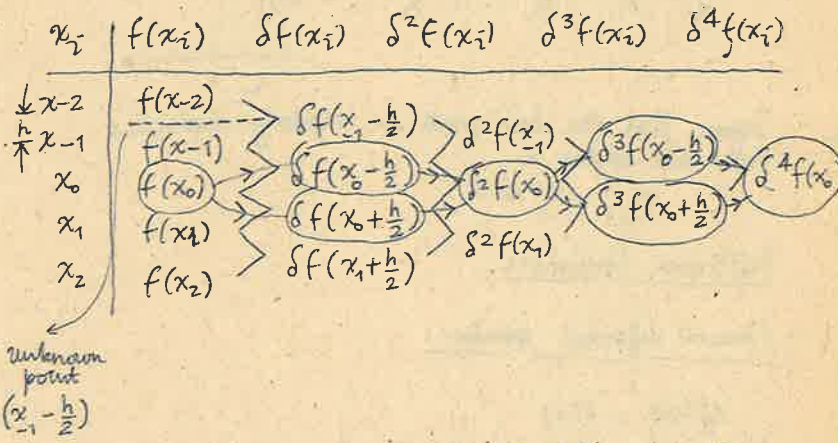 x_i f(x_i) δf(x_i) δ²f(x_i) δ³f(x_i) δ⁴f(x_i)
x-2 f(x-2)
δf(x_-1 - h/2)
h x-1 f(x-1) δ²f(x_-1)
δf(x_0 - h/2) δ³f(x_0 - h/2)
x_0 f(x_0) δ²f(x_0) δ⁴f(x_0
δf(x_0 + h/2) δ³f(x_0 + h/2)
x_1 f(x_1) δ²f(x_1)
δf(x_1 + h/2)
x_2 f(x_2)
unknown
point
(x_-1 - h/2)